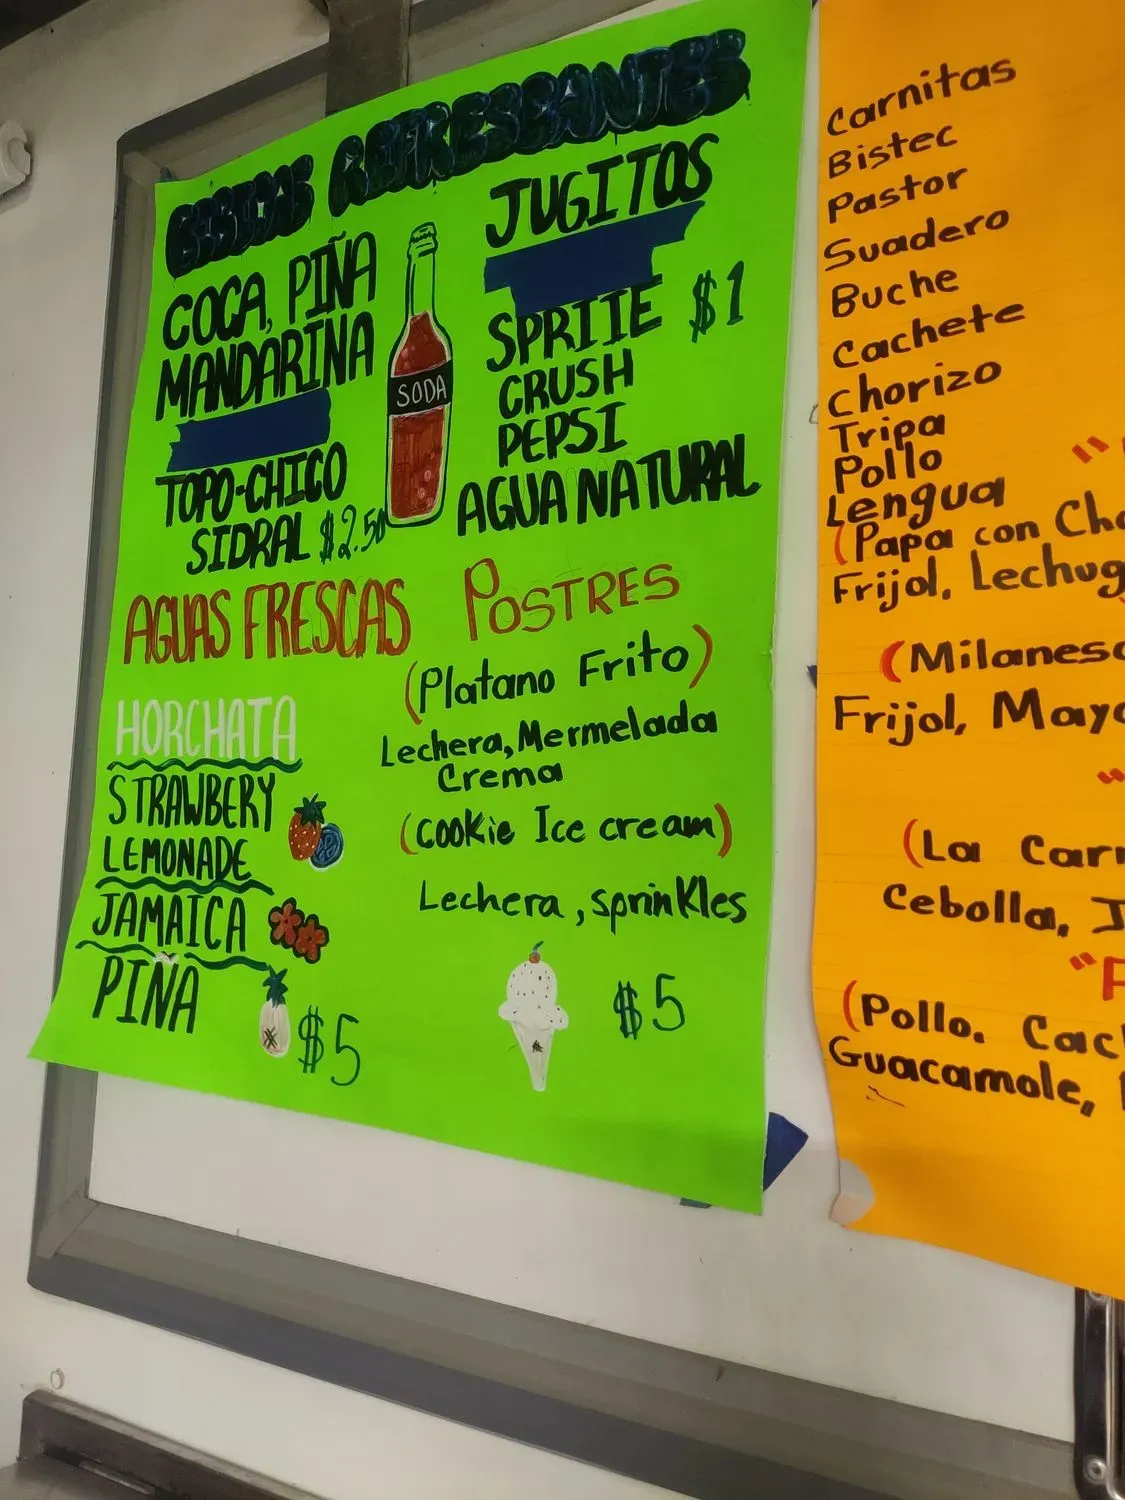 BEBIDAS REFRESCANTES
COCA, PIÑA
MANDARINA
TOPO-CHICO
SIDRAL $2.50
SODA
JUGITOS
SPRITE $1
CRUSH
PEPSI
AGUA NATURAL
AGUAS FRESCAS
HORCHATA
STRAWBERY
LEMONADE
JAMAICA
PIÑA
$5
POSTRES
(Platano Frito)
Lechera, Mermelada
Crema
(Cookie Ice cream)
Lechera, sprinkles
$5
Carnitas
Bistec
Pastor
Suadero
Buche
Cachete
Chorizo
Tripa
Pollo
Lengua
(Papa con Cho
Frijol, Lechug
(Milanesa
Frijol, Mayo
(La Car
Cebolla, J
"F
(Pollo. Cac
Guacamole,